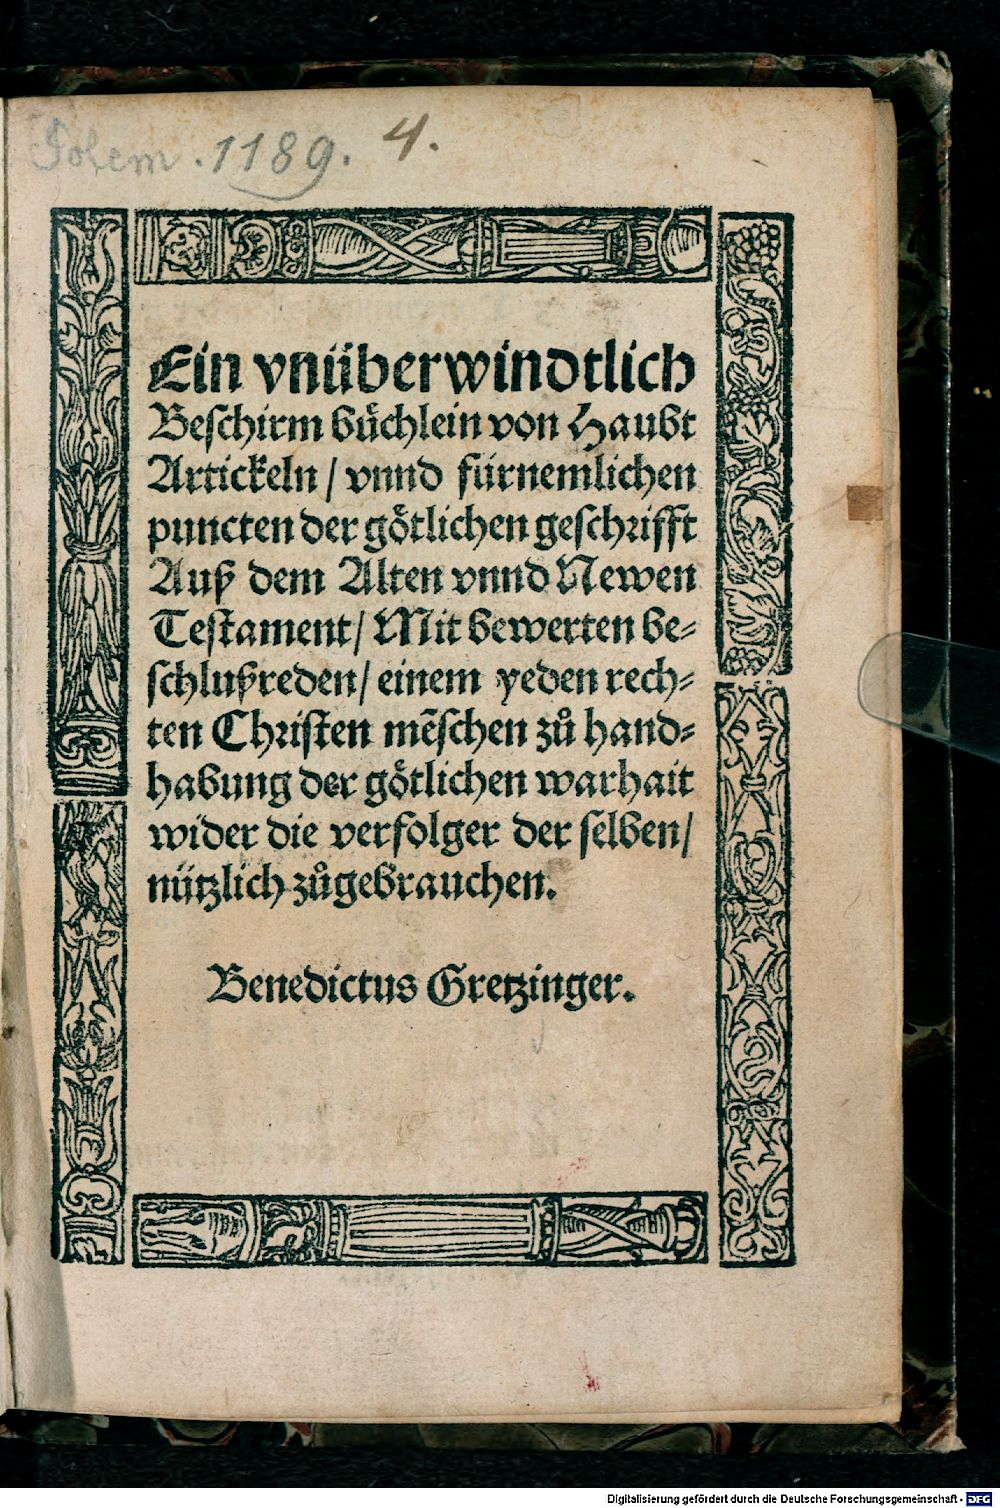 Polem. 1189. 4.
Ein vnüberwindtlich
Beschirm bu̎chlein von Haubt
Artickeln / vnnd fürnemlichen
puncten der götlichen geschrifft
Auß dem Alten vnnd Newen
Testament / Mit bewerten be⸗
schlußreden / einem yeden rech⸗
ten Christen mēschen zů hand⸗
habung der götlichen warhait
wider die verfolger der selben /
nützlich zůgebrauchen.
Benedictus Gretzinger.
Digitalisierung gefördert durch die Deutsche Forschungsgemeinschaft - DFG